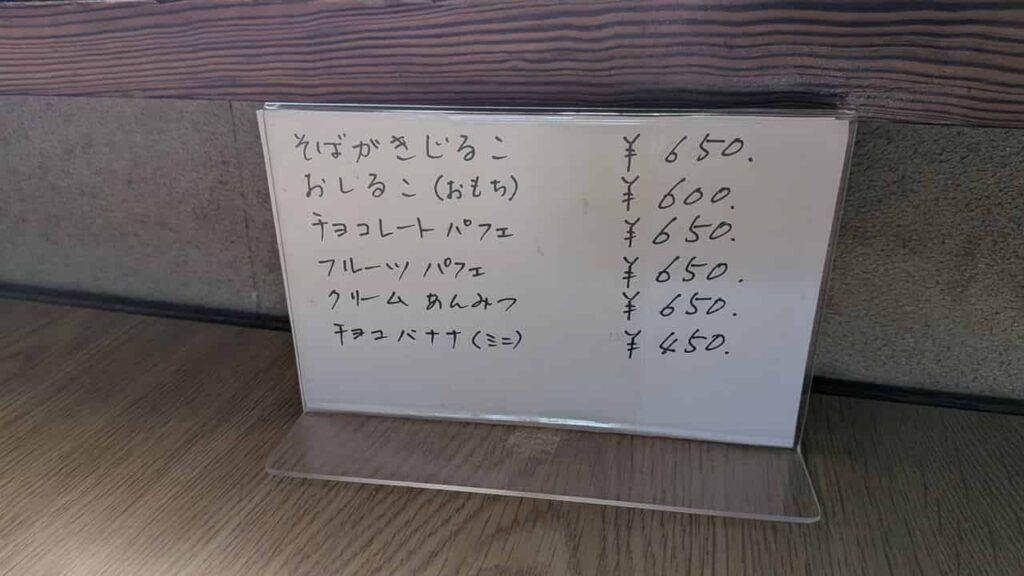 そばがきじるこ ¥650.
おしるこ(おもち) ¥600.
チョコレートパフェ ¥650.
フルーツパフェ ¥650.
クリームあんみつ ¥650.
チョコバナナ(ミニ) ¥450.